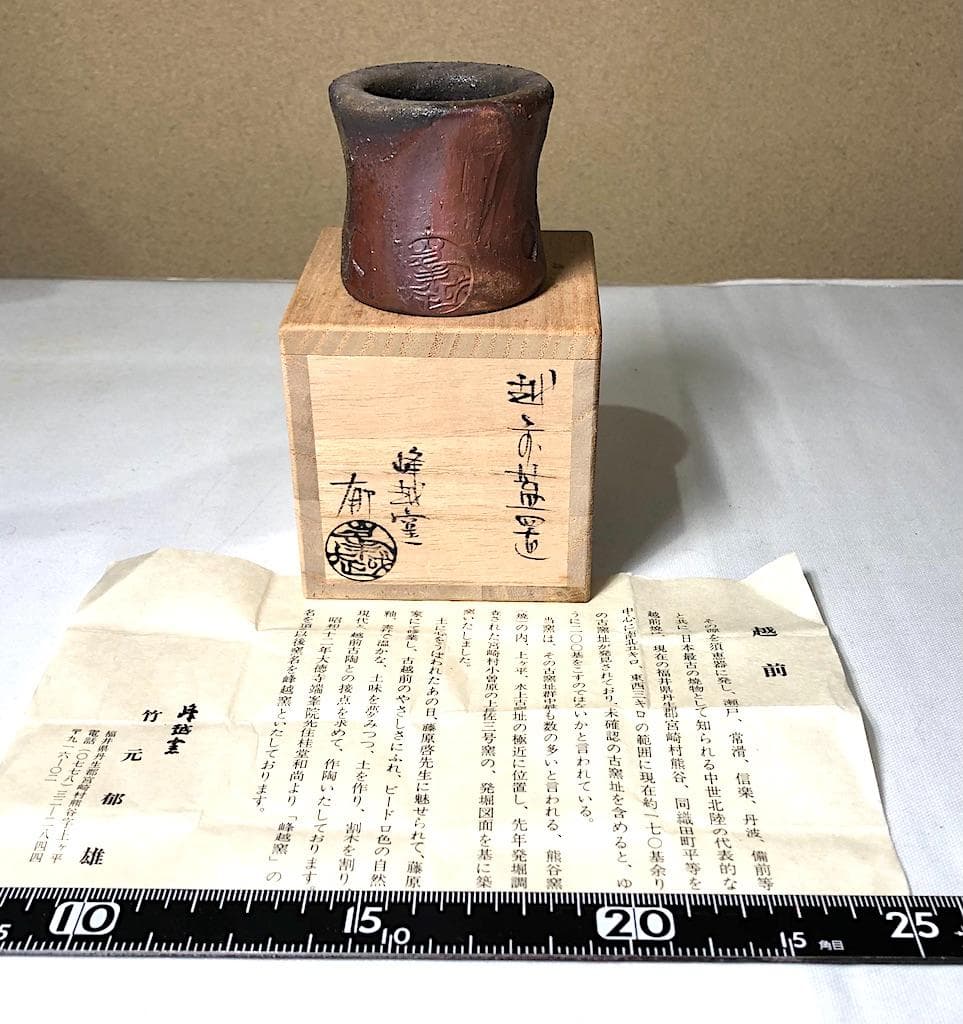 越前蓋置
峰越窯
郁
越前
その源を須恵器に発し、瀬戸、常滑、信楽、丹波、備前等
と共に日本最古の焼物として知られる中世北陸の代表的な
越前焼。現在の福井県丹生郡宮崎村熊谷、同織田町平等を
中心に南北五キロ、東西三キロの範囲に現在約一七〇基余り
の古窯址が発見されており、未確認の古窯址を含めると、ゆ
うに二〇〇基をこすのではないかと言われている。
当窯は、その古窯址群中最も数の多いと言われる、熊谷窯
焼の内、上ヶ平、水上古址の極近に位置し、先年発掘調
査された宮崎村小曽原の上佐三号窯の、発掘図面を基に築
窯いたしました。
土に心をうばわれたあの日、藤原啓先生に魅せられて、藤原
家にて修業し、古越前のやさしさにふれ、ビードロ色の自然
釉、素朴で温かな、土味を夢みつつ、土を作り、割木を割り、
現代と越前古陶との接点を求めて、作陶いたしております。
昭和五十二年大徳寺端峯院先住桂堂和尚より「峰越窯」の
名を頂き以後窯名を峰越窯といたしております。
峰越窯
竹元郁雄
福井県丹生郡宮崎村熊谷字上ヶ平
電話(〇七七八)三二―二八四四
〒九一六―〇二
10
15
20
25
5
10
15
角目